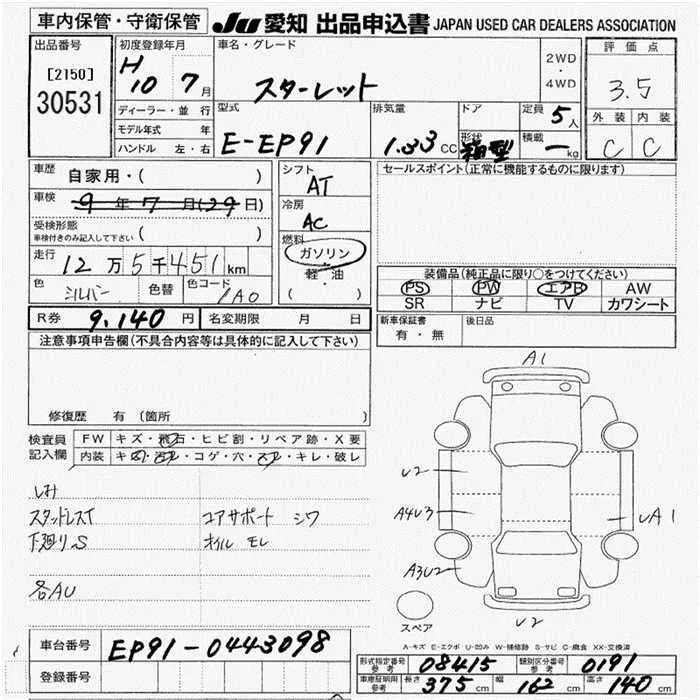 車内保管・守衛保管
JU 愛知 出品申込書 JAPAN USED CAR DEALERS ASSOCIATION
出品番号
[2150]
30531
初度登録年月
H 10 7月
ディーラー・並行
モデル年式 年
ハンドル 左・右
車名・グレード
スターレット
2WD
・
4WD
型式
E-EP91
排気量
1.33 CC
ドア
形状
箱型
定員 5人
積載 ー kg
評価点
3.5
外装 内装
C C
車歴 自家用・( )
車検 9年7月(29日)
受検形態
車検付きのみ記入して下さい ( )
走行 12万5千451km
色 シルバー 色替 色コード 1A0
シフト
AT
冷房
AC
燃料
ガソリン
軽・油
( ・ )
セールスポイント(正常に機能するものに限ります)
装備品(純正品に限り○をつけてください)
PS PW エアB AW
SR ナビ TV カワシート
R券 9.140円 名変期限 月 日
新車保証書
有・無
後日品
注意事項申告欄(不具合内容等は具体的に記入して下さい)
修復歴 有(箇所 )
検査員
記入欄
FW キズ・飛石・ヒビ割・リペア跡・X要
内装 コゲ・穴・キレ・破レ
スタッドレスT コアサポート シワ
下廻りS オイル モレ
各AU
A1
U2
A4U3
UA1
A3U2
U2
スペア
A-キズ E-エクボ U-凹み W-補修跡 S-サビ C-腐食 XX-交換済
車台番号 EP91-0443098
登録番号
形式指定番号
参考
08415
類別区分番号
参考
0191
車庫証明用
参考
長さ 375cm 幅 162cm 高さ 140cm